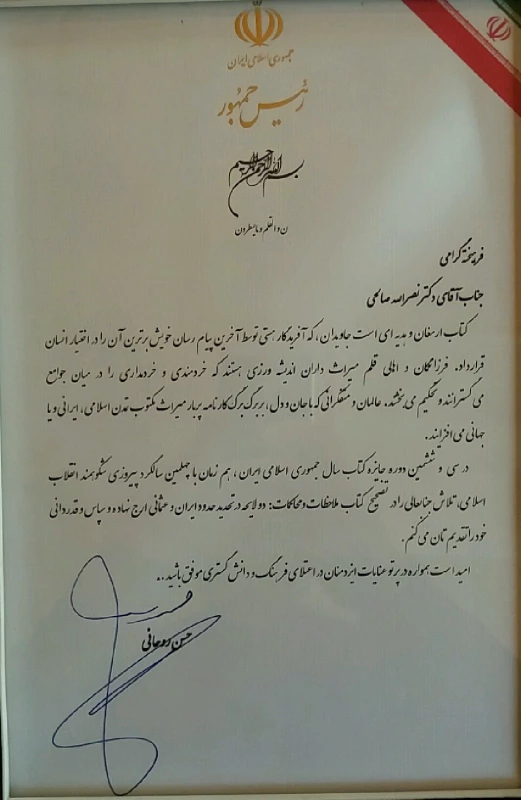 جمهوری اسلامی ایران
رئیس جمهور
بسم الله الرحمن الرحیم
ن و القلم و مایسطرون
فرهیخته گرامی
جناب آقای دکتر نصرالله صالحی
کتاب ارمغان و هدیه ای است جاویدان، که آفریدگار هستی توسط آخرین پیام رسان خویش برترین آن را در اختیار انسان
قرار داد. فرزانگان و اهالی قلم میراث داران اندیشه ورزی هستند که خردمندی و خردمداری را در میان جوامع
می گسترانند و تحکیم می بخشند. عالمان و متفکرانی که با جان و دل، بر برگ برگ کارنامه پربار میراث مکتوب تمدن اسلامی، ایرانی و یا
جهانی می افزایند.
در سی و ششمین دوره جایزه کتاب سال جمهوری اسلامی ایران، هم زمان با چهلمین سالگرد پیروزی شکوهمند انقلاب
اسلامی، تلاش جنابعالی را در تصحیح کتاب ملاحظات و محاکمات: دو لایحه در تحدید حدود ایران و عثمانی ارج نهاده و سپاس و قدردانی
خود را تقدیم تان می کنم.
امید است همواره در پرتو عنایات ایزد منان در اعتلای فرهنگ و دانش گستری موفق باشید..
حسن روحانی